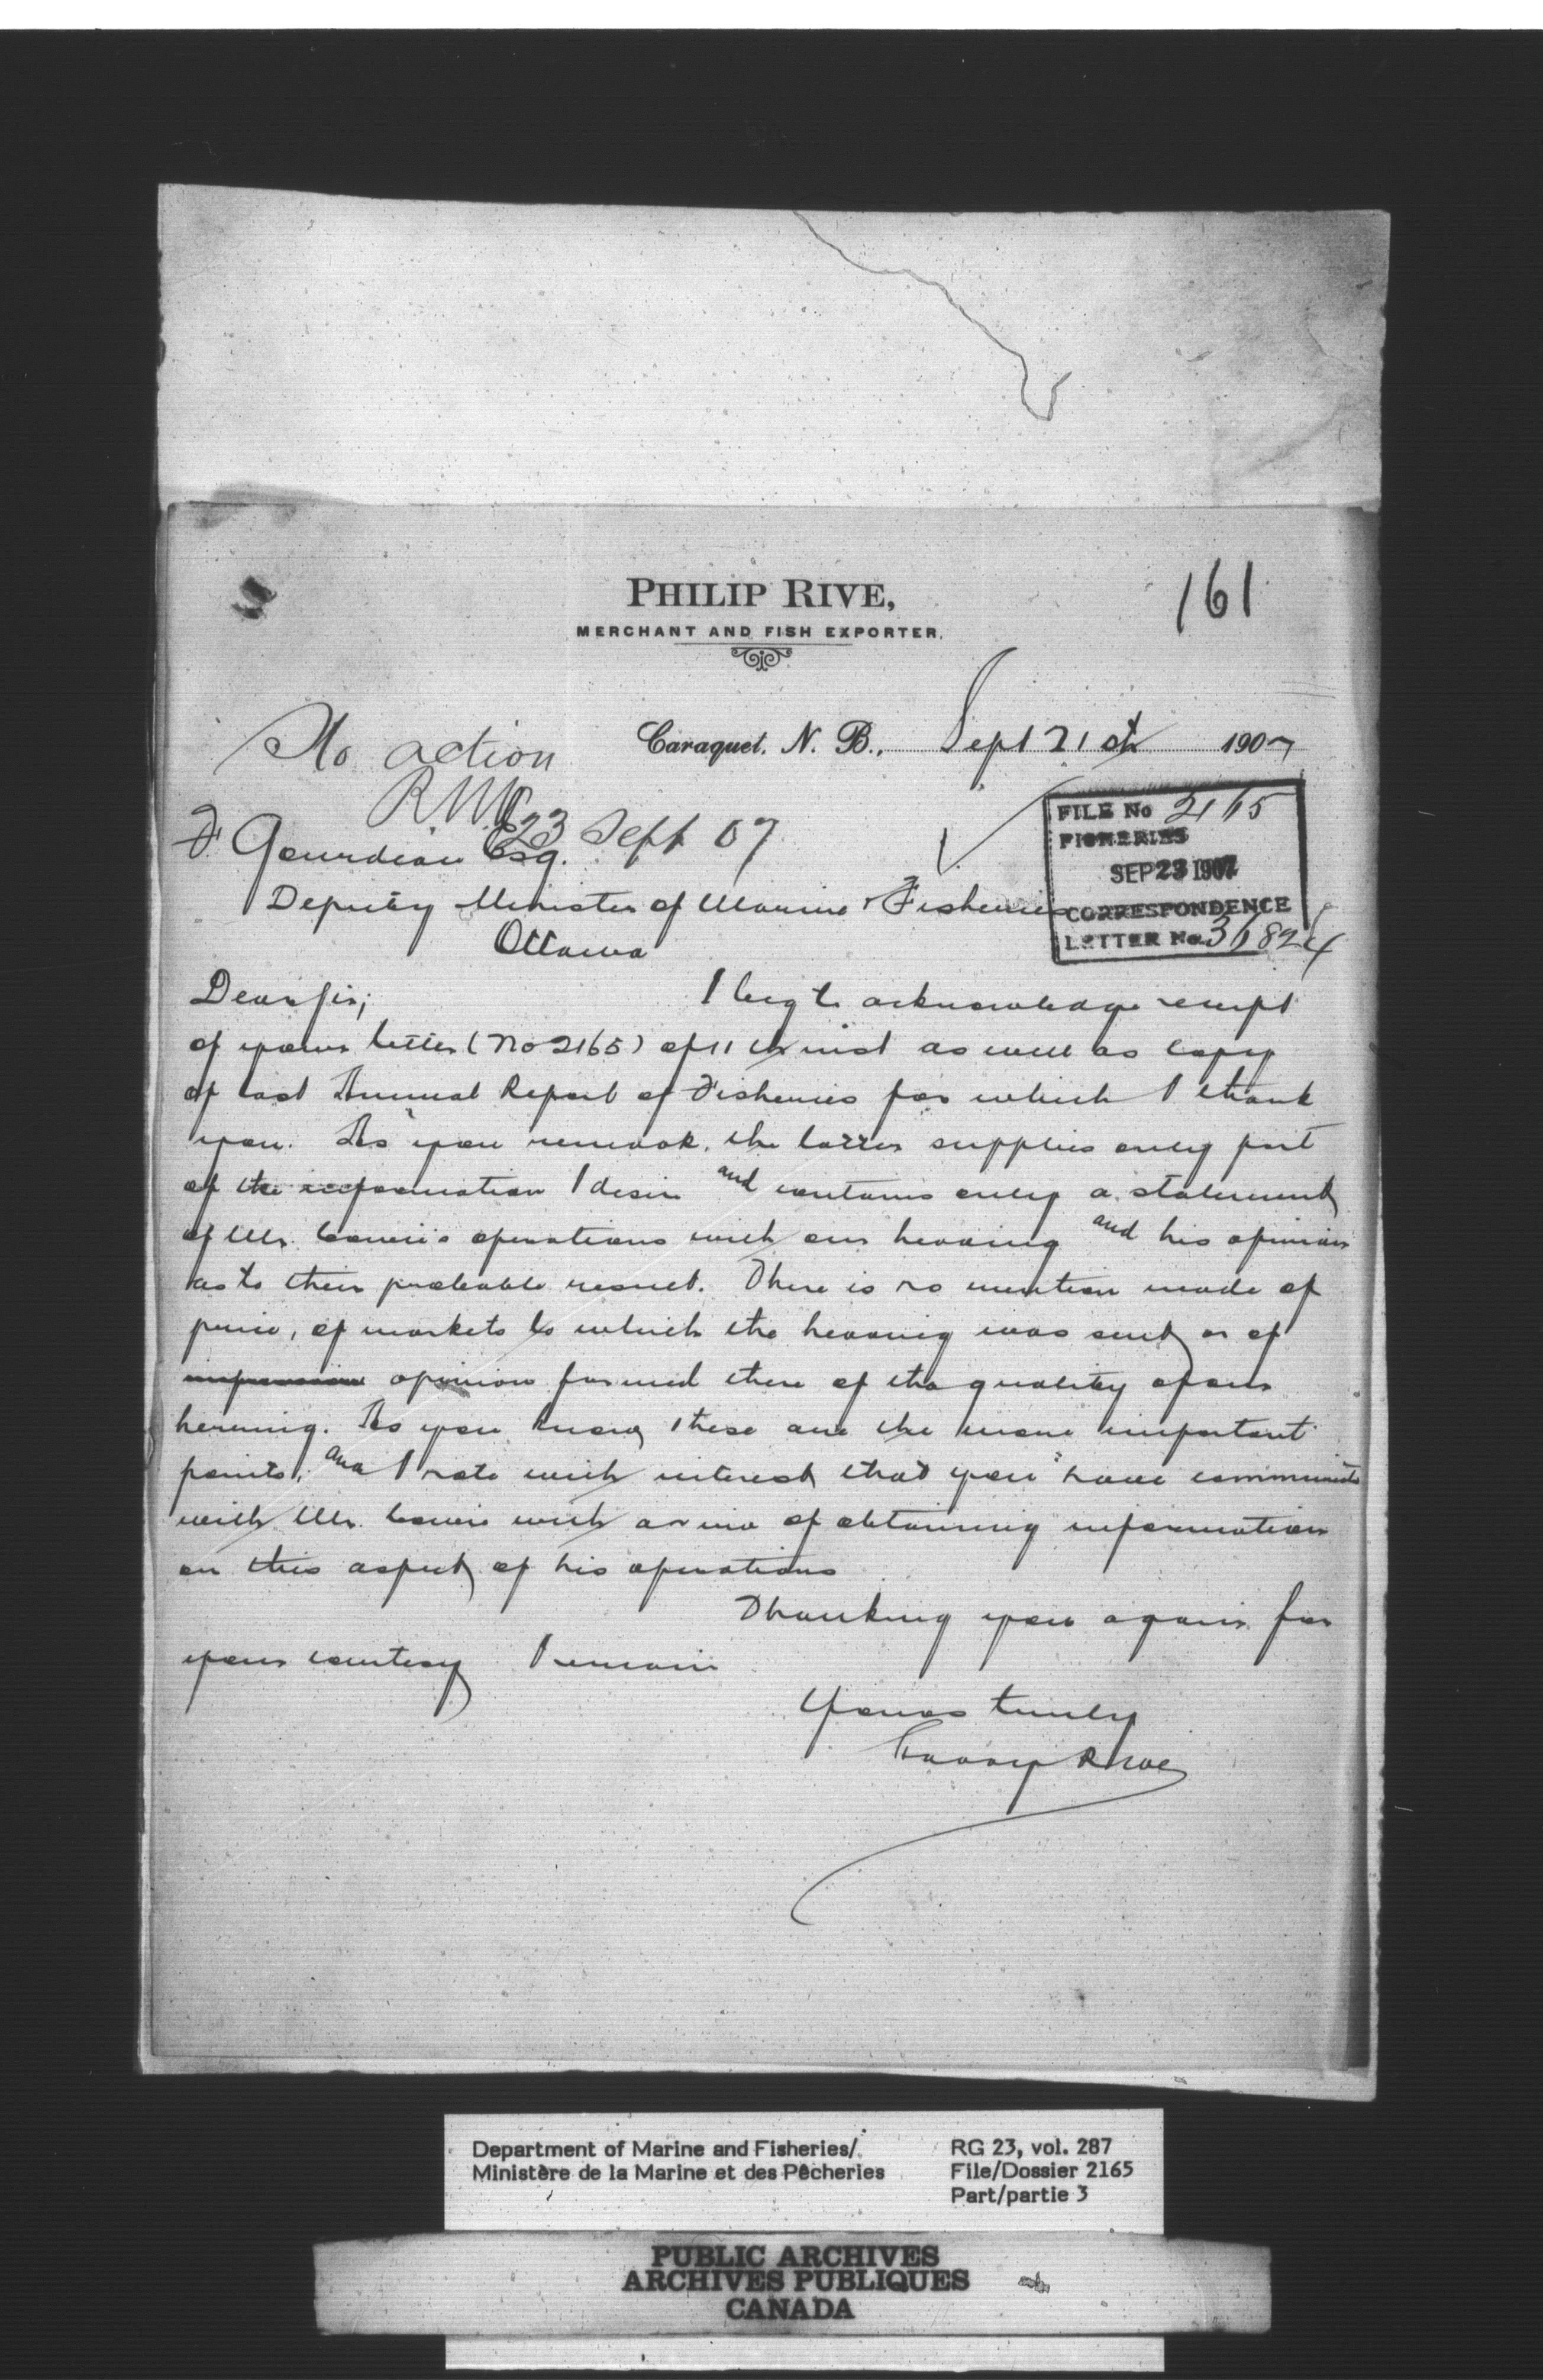 161
PHILIP RIVE,
MERCHANT AND FISH EXPORTER.
Caraquet, N. B., Sept 21st 1907
No action
23 Sept 07
FILE No 2165
FISHERIES
SEP 23 1907
CORRESPONDENCE
LETTER No. 36824
F. Gourdeau Esq.
Deputy Minister of Marine & Fisheries
Ottawa
Dear Sir; I beg to acknowledge receipt
of your letter (No 2165) of 11th inst as well as copy
of last Annual Report of Fisheries for which I thank
you. As you remark, the latter supplies only part
of the information I desire and contains only a statement
of Mr. Cowie's operations with our herring and his opinion
as to their probable result. There is no mention made of
price, of markets to which the herring was sent or of
impression opinion formed there of the quality of our
herring. As you know these are the more important
points, and I note with interest that you have communicated
with Mr. Cowie with a view of obtaining information
on this aspect of his operations
Thanking you again for
your courtesy I remain
Yours truly
Rive
Department of Marine and Fisheries/
Ministère de la Marine et des Pêcheries
RG 23, vol. 287
File/Dossier 2165
Part/partie 3
PUBLIC ARCHIVES
ARCHIVES PUBLIQUES
CANADA